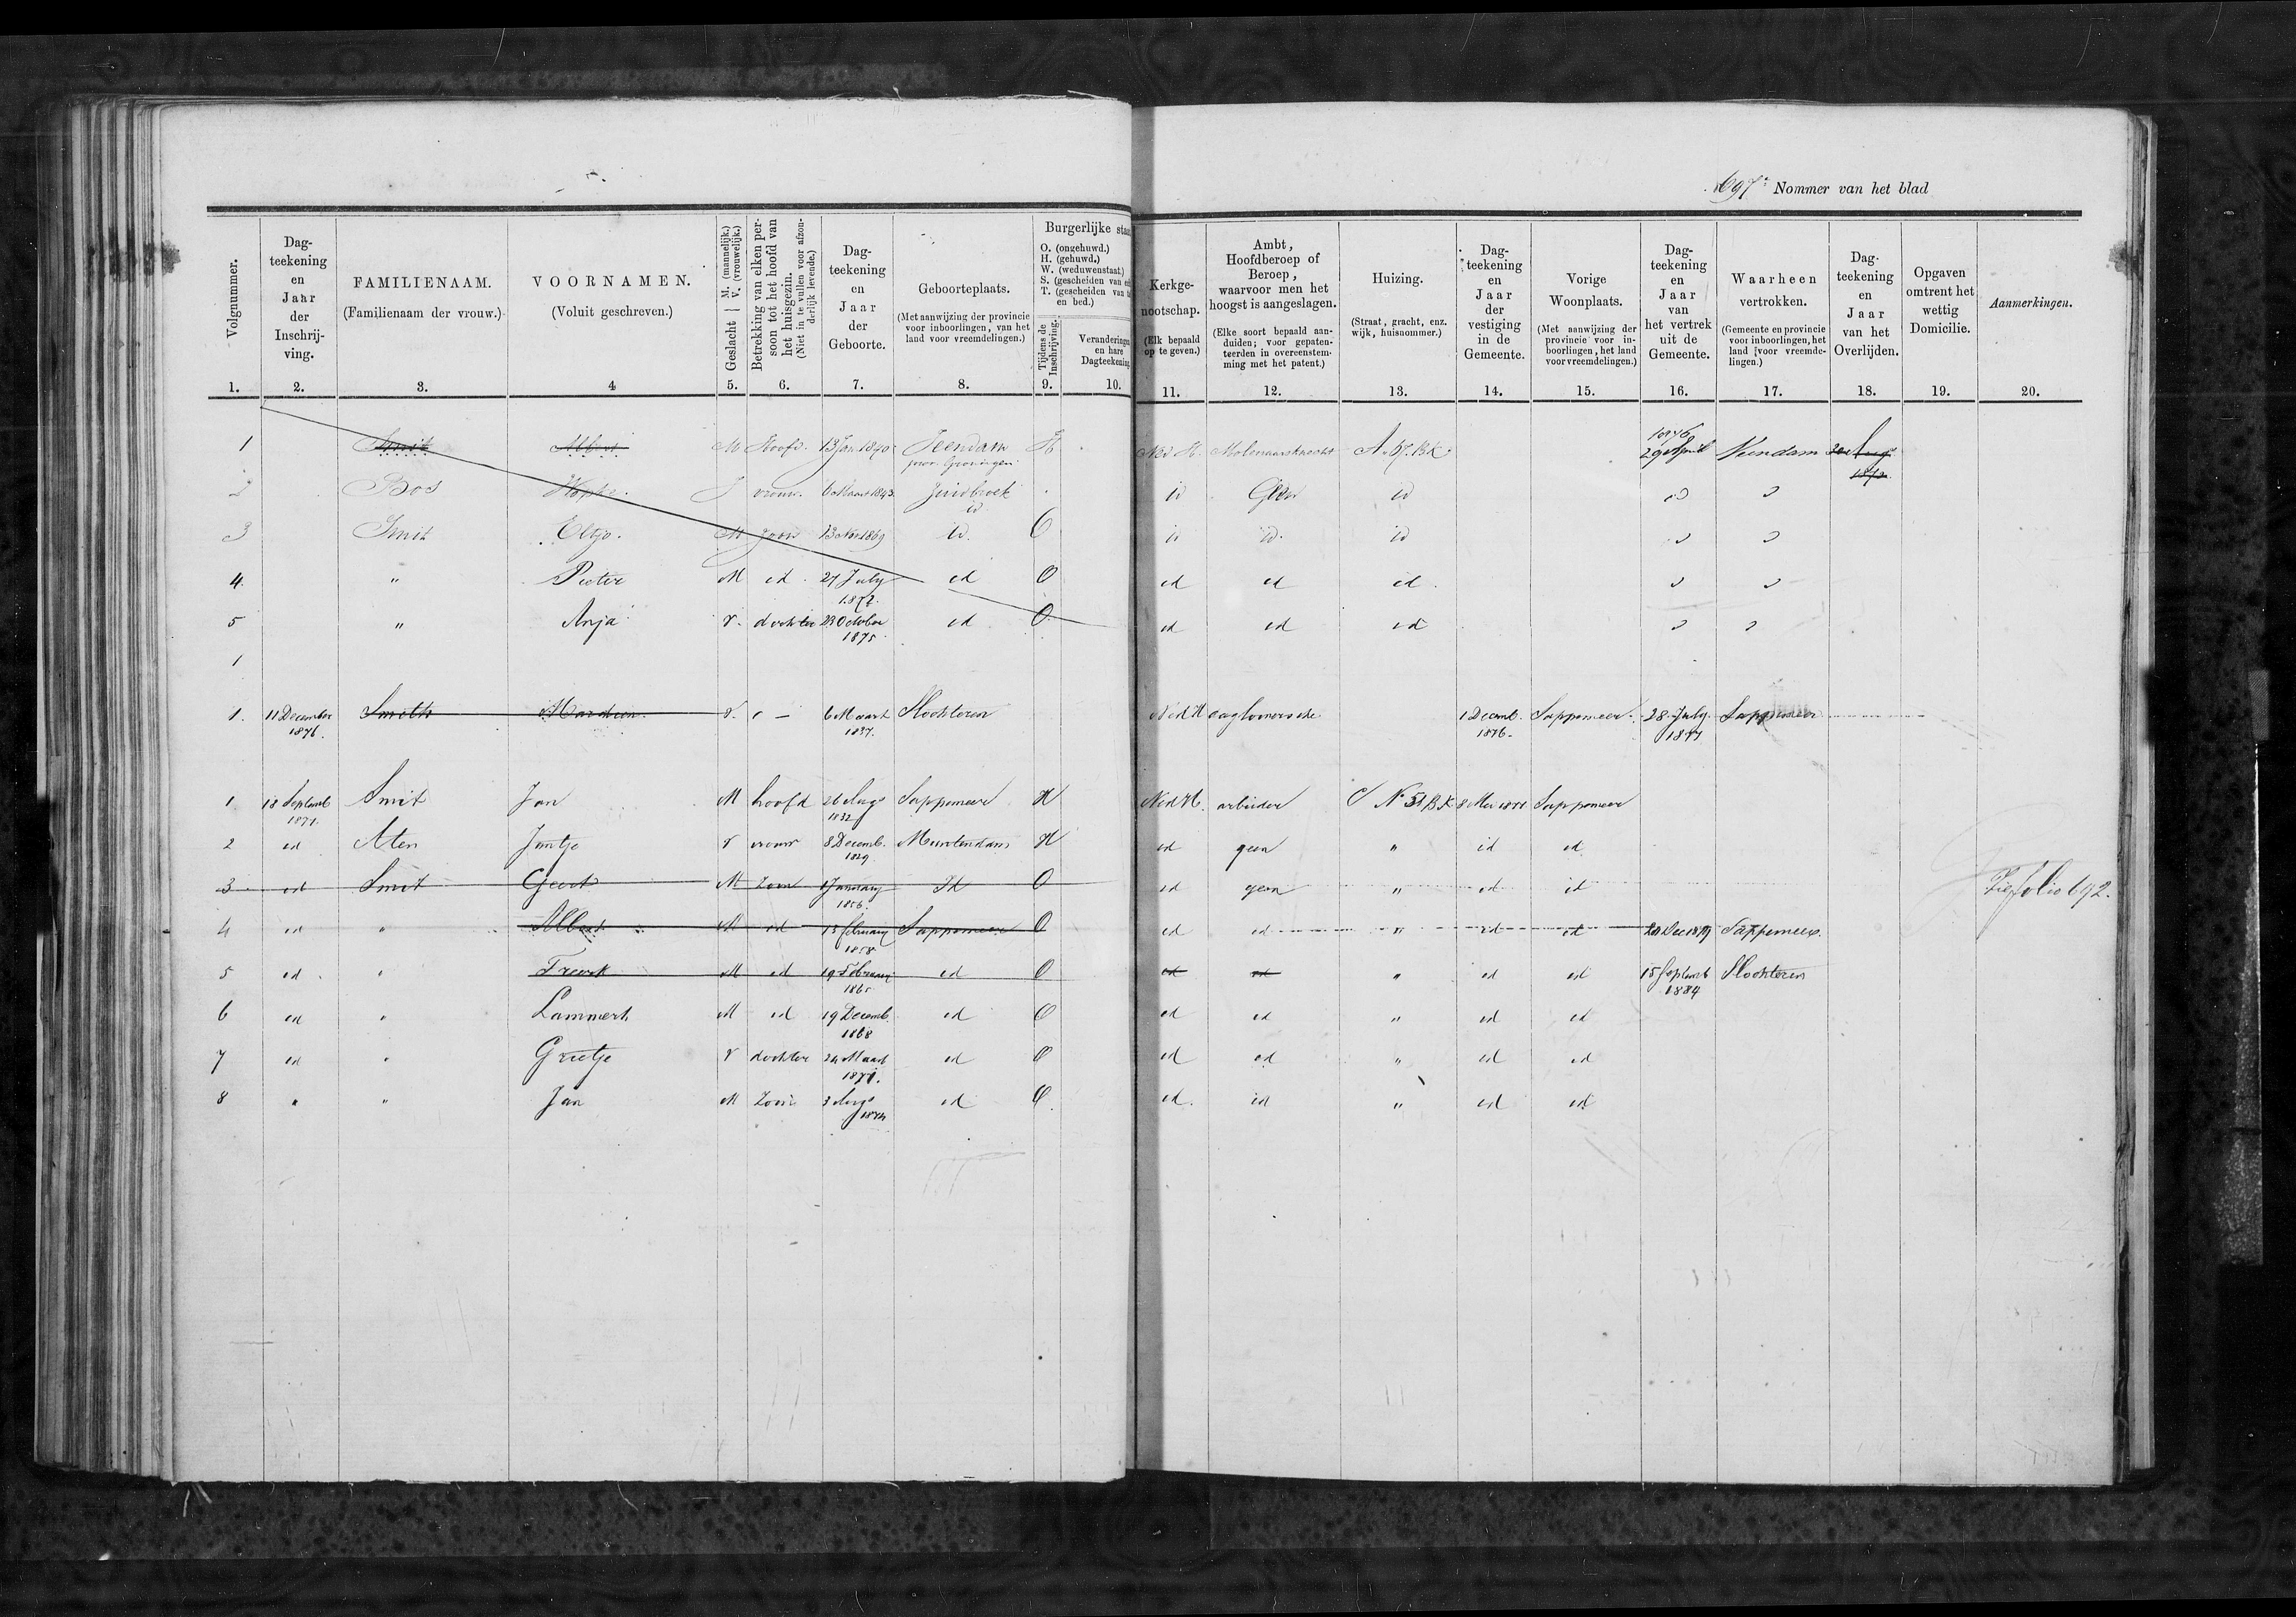 697 Nommer van het blad
Volgnummer. Dag-teekening en Jaar der Inschrij-ving. FAMILIENAAM. (Familienaam der vrouw.) VOORNAMEN. (Voluit geschreven.) Geslacht M. (mannelijk.) V. (vrouwelijk.) Betrekking van elken per-soon tot het hoofd van het huisgezin. (Niet in te vullen voor afzon-derlijk levende.) Dag-teekening en Jaar der Geboorte. Geboorteplaats. (Met aanwijzing der provincie voor inboorlingen, van het land voor vreemdelingen.) Burgerlijke staat O. (ongehuwd.) H. (gehuwd.) W. (weduwenstaat.) S. (gescheiden van T. (gescheiden van en bed.) Tijdens de Inschrijving. Veranderingen en hare Dagteekening. Kerkge-nootschap. (Elk bepaald op te geven.) Ambt, Hoofdberoep of Beroep, waarvoor men het hoogst is aangeslagen. (Elke soort bepaald aan-duiden; voor gepaten-teerden in overeenstem-ming met het patent.) Huizing. (Straat, gracht, enz. wijk, huisnommer.) Dag-teekening en Jaar der vestiging in de Gemeente. Vorige Woonplaats. (Met aanwijzing der provincie voor in-boorlingen, het land voor vreemdelingen.) Dag-teekening en Jaar van het vertrek uit de Gemeente. Waarheen vertrokken. (Gemeente en provincie voor inboorlingen, het land voor vreemde-lingen.) Dag-teekening en Jaar van het Overlijden. Opgaven omtrent het wettig Domicilie. Aanmerkingen.
1. 2. 3. 4 5. 6. 7. 8. 9. 10. 11. 12. 13. 14. 15. 16. 17. 18. 19. 20.
1 Smit Albert M Hoofd. 13 Jan 1840 Veendam prov. Groningen H Ned H. Molenaarsknecht 1876 29 April Veendam 1872
2 Bos vrouw. 6 Maart 1843 Zuidbroek id id Geen id
3 Smit Eltjo. M zoon 13 Nov 1869 id. O id id id
4. " Pieter M id 27 July 1872. id O id id id.
5 " Anja V. dochter 23 October 1875 id O id id id
1
1. 11 December 1876. Smith V. 6 Maart 1837. Slochteren Ned H dagloonersche 1 Decemb. 1876. Sappemeer 28 July 1877 Sappemeer
1. 18 Septemb 1877. Smit Jan M hoofd 26 Augs 1832 Sappemeer H Ned H. arbeider No 51 BK 8 Mei 1877 Sappemeer
2 id Aten Jantje V vrouw 8 Decemb. 1829 Muntendam H id geen " id id
3 id Smit Geert M zoon January 1856. Id O id geen " id id Zie folio 692.
4 id " Albert M id 15 february 1858 Sappemeer O id id " id id Dec 1879 Sappemeer.
5 id " Freerk M id 19 February 1865 id O id id " id id 15 Septemb 1884 Slochteren
6 id " Lammert M id 19 Decemb. 1868 id O id id " id id
7 id " Grietje V dochter 24 Maart 1871. id O id id " id id
8 " " Jan M Zoon 3 Augs 1874 id O. id. id " id id